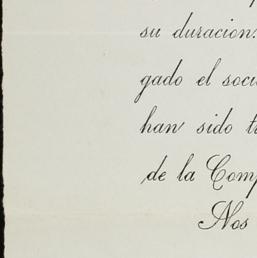 su duracion.
gado el soci
han sido tr
de la Comp
Nos